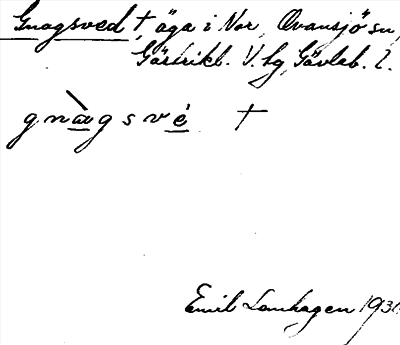 Gnagsved †, äga i Nor, Ovansjö sn,
Gästrikl. V. hg, Gävleb. l.
gnàgsvé †
Emil Lamhagen 193